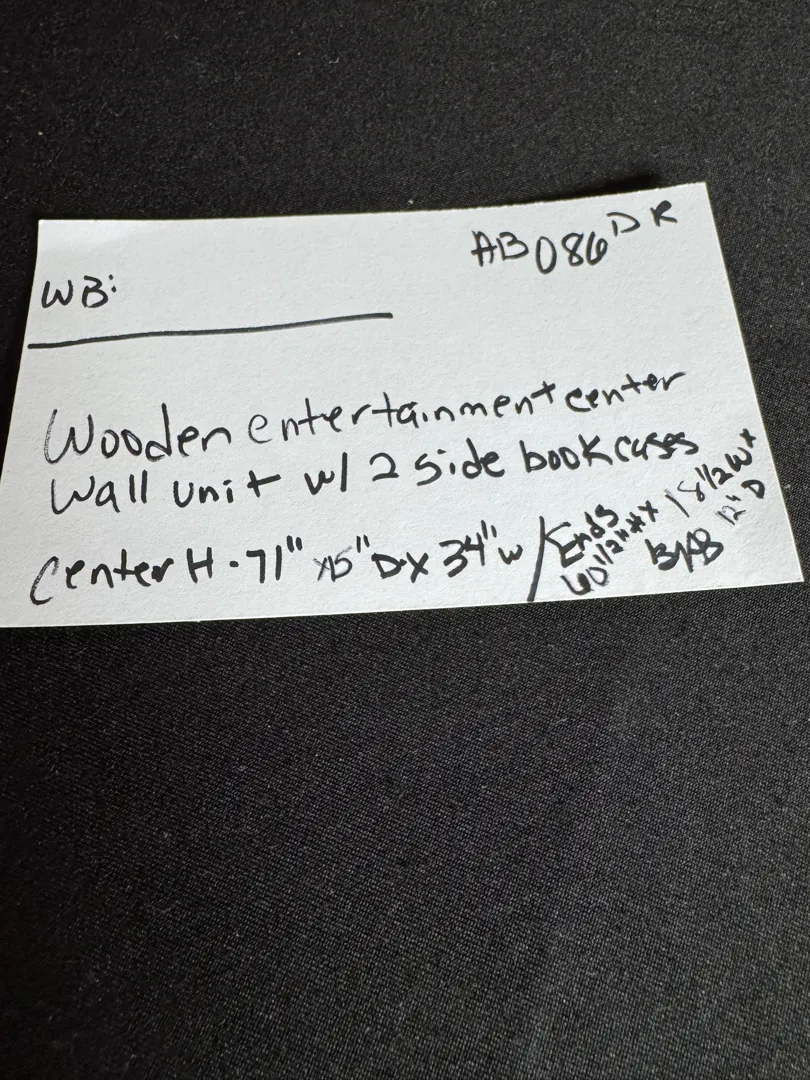 AB086 DR
WB:
Wooden entertainment center
Wall unit w/ 2 side bookcases
Center H - 71" x15" D x 34" w / Ends
60 1/2" H x 18 1/2 W x
12" D